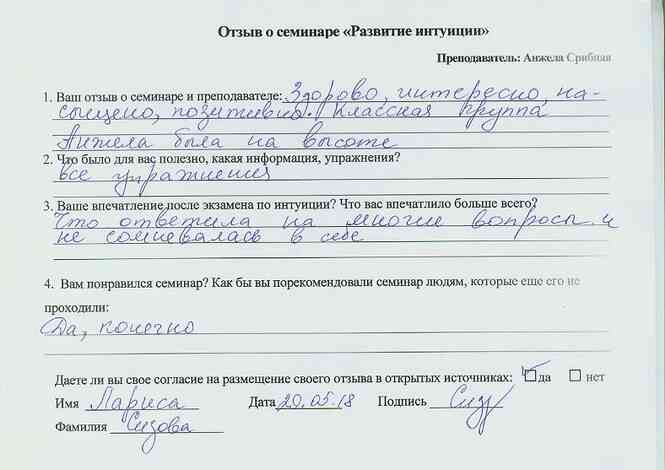 Отзыв о семинаре «Развитие интуиции»
Преподаватель: Анжела Срибная
1. Ваш отзыв о семинаре и преподавателе: Здорово, интересно, на-
сыщено, позитивно. Классная группа
Анжела была на высоте
2. Что было для вас полезно, какая информация, упражнения?
все упражнения
3. Ваше впечатление после экзамена по интуиции? Что вас впечатлило больше всего?
Что ответила на многие вопросы и
не сомневалась в себе
4. Вам понравился семинар? Как бы вы порекомендовали семинар людям, которые еще его не
проходили:
Да, конечно
Даете ли вы свое согласие на размещение своего отзыва в открытых источниках: да нет
Имя Лариса Дата 20.05.18 Подпись Сизу
Фамилия Сизова